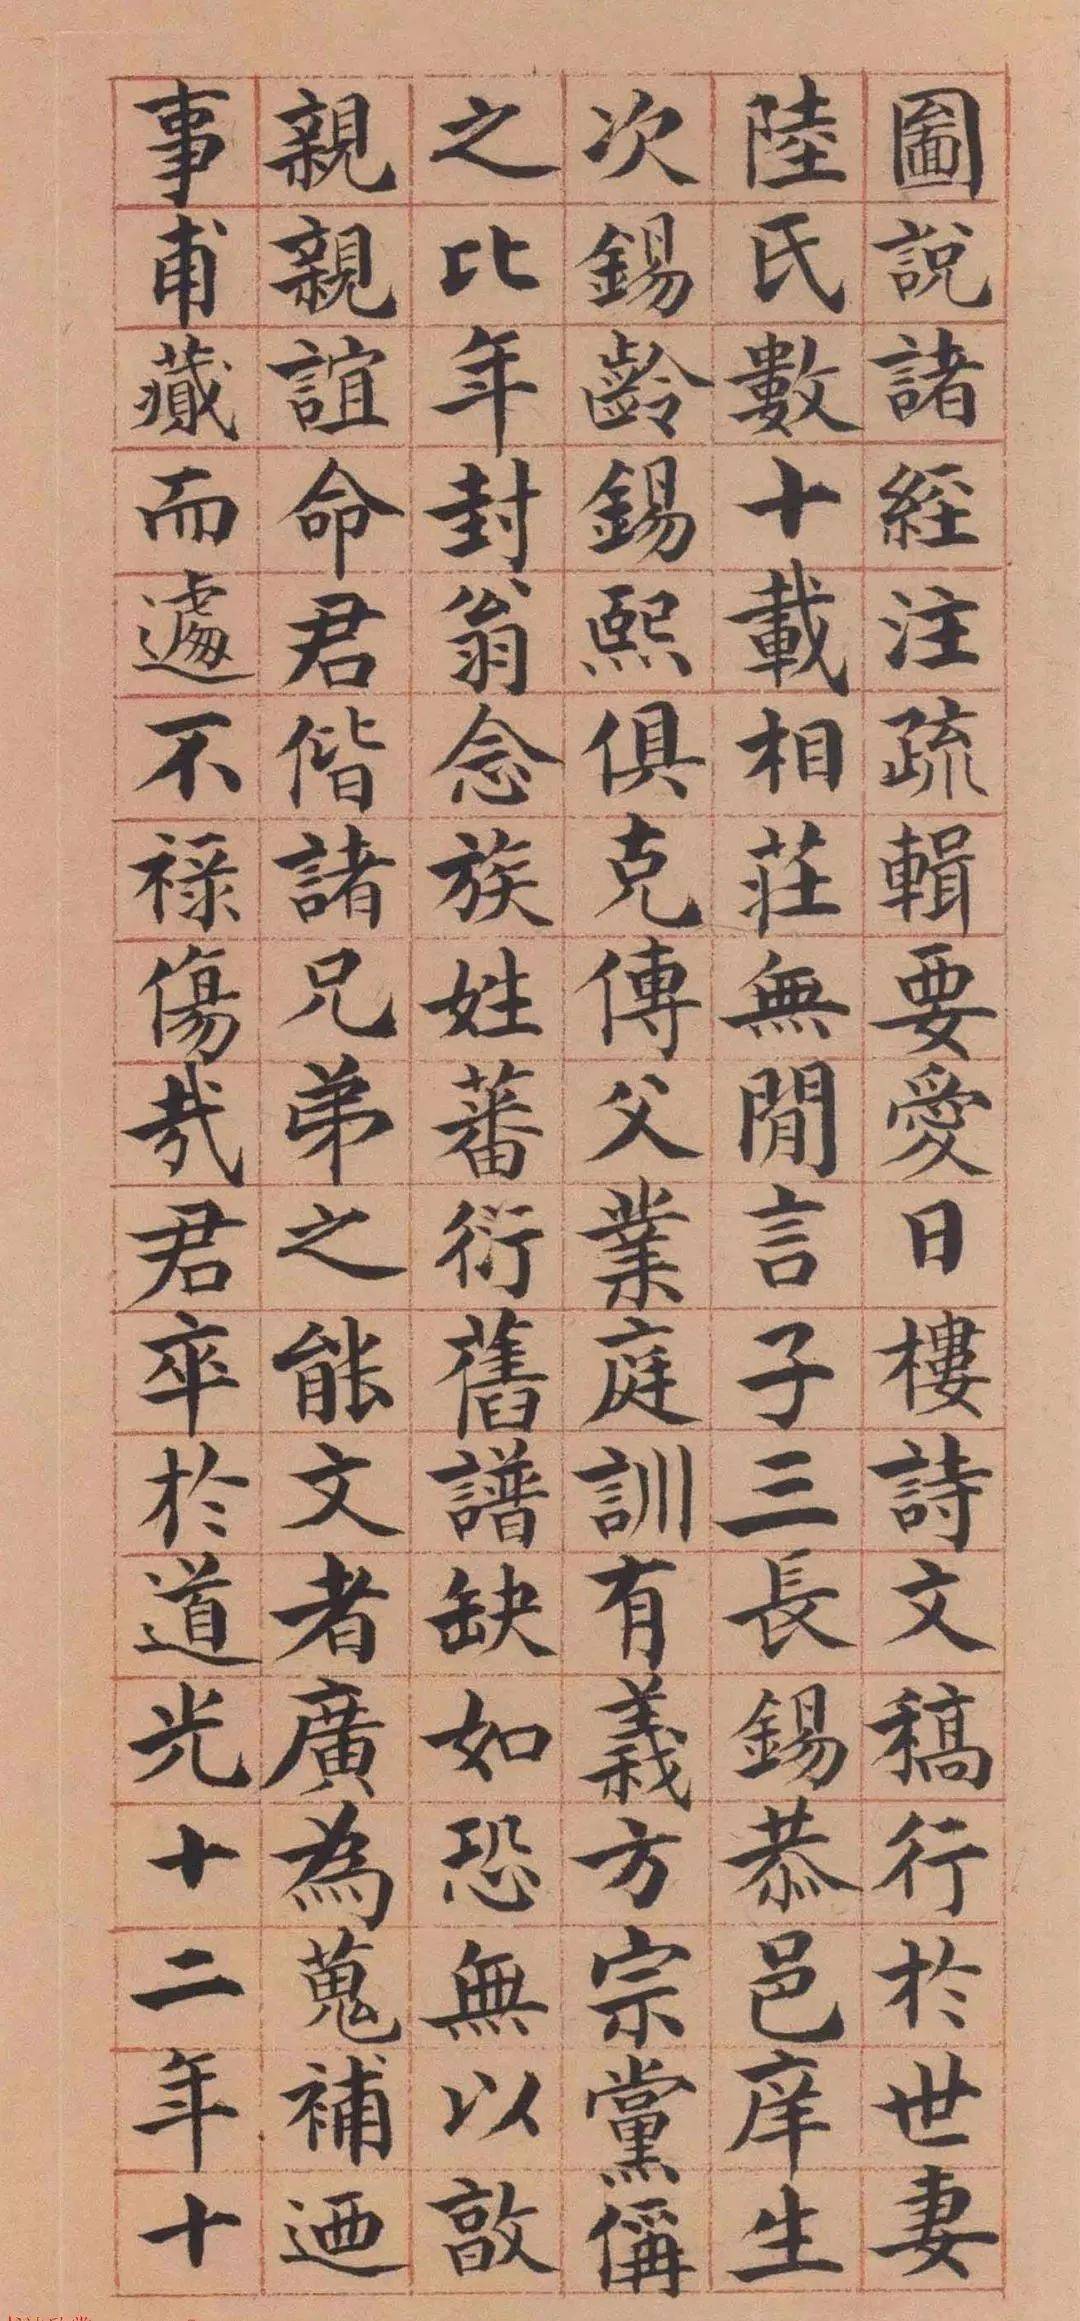 圗說諸經注疏輯要愛日樓詩文稿行於世妻
陸氏數十載相莊無閒言子三長錫恭邑庠生
次錫齡錫熙俱克傳父業庭訓有義方宗黨偁
之比年封翁念族姓蕃衍舊譜缺如恐無以敦
親親誼命君偕諸兄弟之能文者廣為蒐補迺
事甫蕆而遽不祿傷哉君卒於道光十二年十